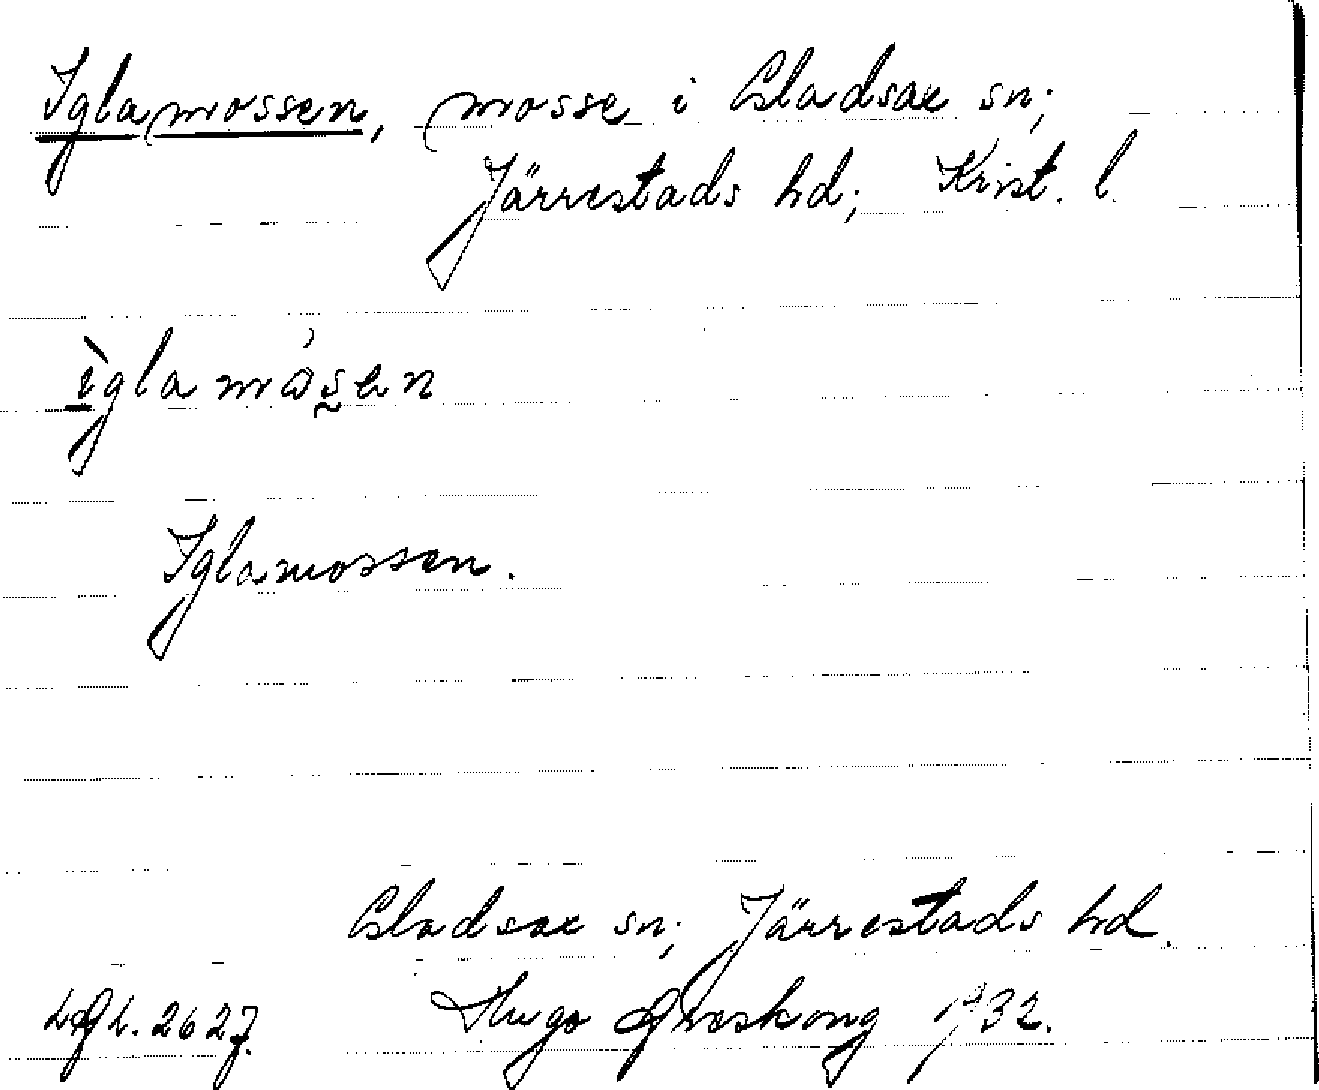 Iglamossen, mosse i Gladsax sn;
Järrestads hd; Krist. l.
ìglamåsen
Iglamossen.
Gladsax sn; Järrestads hd.
Hugo Areskoug 1932.